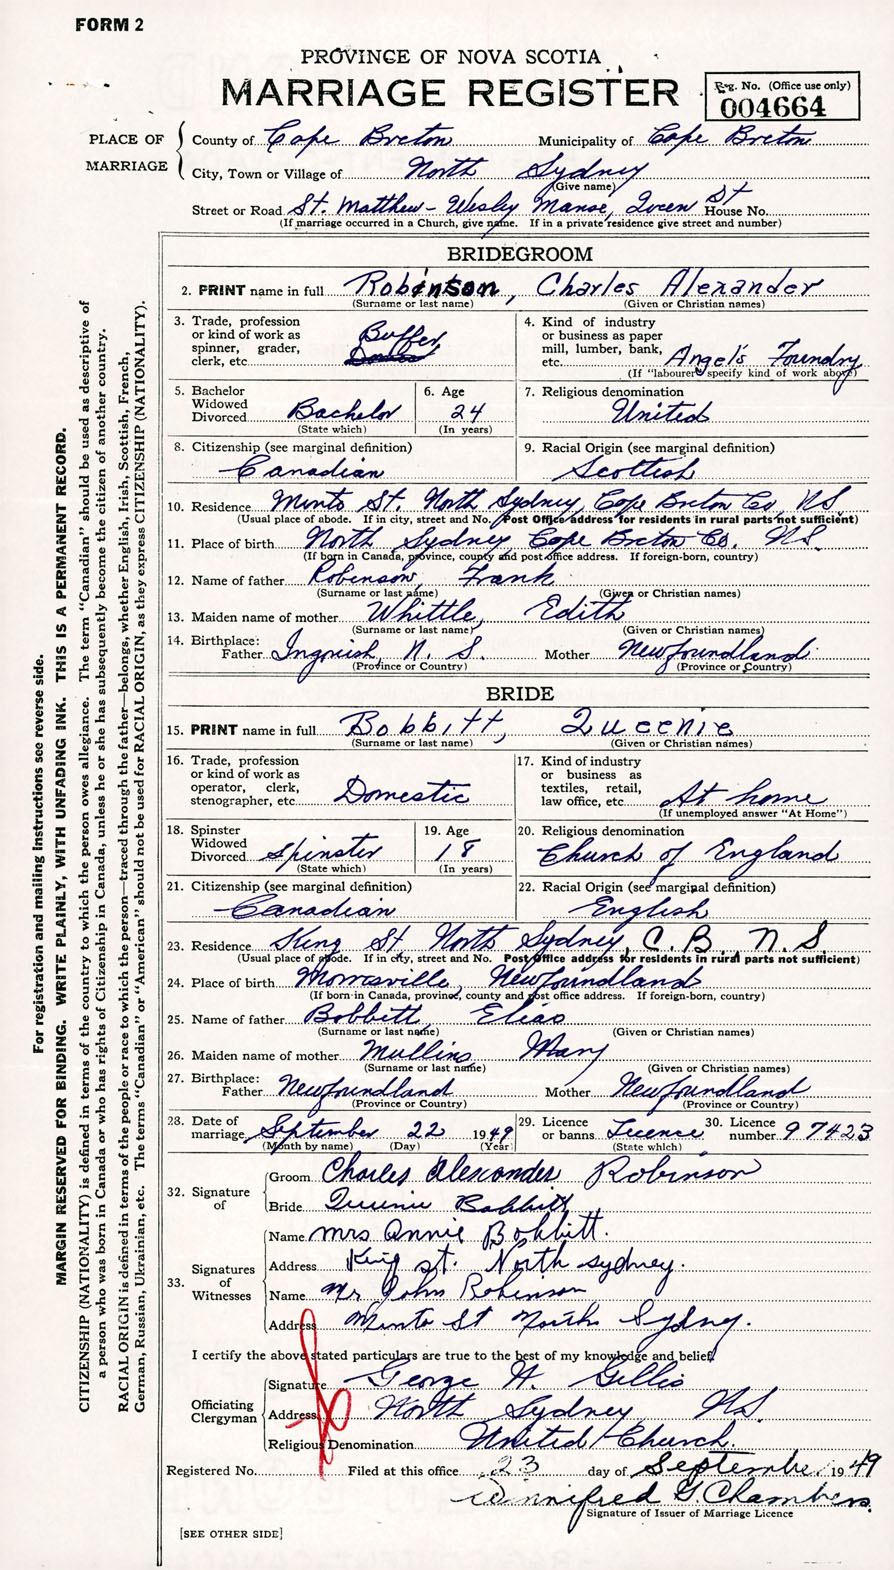 FORM 2
PROVINCE OF NOVA SCOTIA
MARRIAGE REGISTER
Reg. No. (Office use only)
004664
PLACE OF MARRIAGE
County of Cape Breton Municipality of Cape Breton
City, Town or Village of North Sydney
(Give name)
Street or Road St. Matthew - Wesley Manse, Queen St House No.
(If marriage occurred in a Church, give name. If in a private residence give street and number)
BRIDEGROOM
2. PRINT name in full Robinson, Charles Alexander
(Surname or last name) (Given or Christian names)
3. Trade, profession or kind of work as spinner, grader, clerk, etc. Buffer
4. Kind of industry or business as paper mill, lumber, bank, etc. Angel's Foundry
(If "labourer" specify kind of work above)
5. Bachelor Widowed Divorced Bachelor
(State which)
6. Age 24
(In years)
7. Religious denomination United
8. Citizenship (see marginal definition) Canadian
9. Racial Origin (see marginal definition) Scottish
10. Residence Minto St. North Sydney, Cape Breton Co, NS
(Usual place of abode. If in city, street and No. Post Office address for residents in rural parts not sufficient)
11. Place of birth North Sydney Cape Breton Co. NS.
(If born in Canada, province, county and post office address. If foreign-born, country)
12. Name of father Robinson, Frank
(Surname or last name) (Given or Christian names)
13. Maiden name of mother Whittle, Edith
(Surname or last name) (Given or Christian names)
14. Birthplace: Father Ingonish, N. S. Mother Newfoundland
(Province or Country) (Province or Country)
BRIDE
15. PRINT name in full Bobbitt, Queenie
(Surname or last name) (Given or Christian names)
16. Trade, profession or kind of work as operator, clerk, stenographer, etc. Domestic
17. Kind of industry or business as textiles, retail, law office, etc. At home
(If unemployed answer "At Home")
18. Spinster Widowed Divorced Spinster
(State which)
19. Age 18
(In years)
20. Religious denomination Church of England
21. Citizenship (see marginal definition) Canadian
22. Racial Origin (see marginal definition) English
23. Residence King St North Sydney, C. B. N. S
(Usual place of abode. If in city, street and No. Post Office address for residents in rural parts not sufficient)
24. Place of birth Morrisville, Newfoundland
(If born in Canada, province, county and post office address. If foreign-born, country)
25. Name of father Bobbitt, Elias
(Surname or last name) (Given or Christian names)
26. Maiden name of mother Mullins Mary
(Surname or last name) (Given or Christian names)
27. Birthplace: Father Newfoundland Mother Newfoundland
(Province or Country) (Province or Country)
28. Date of marriage September 22 1949
(Month by name) (Day) (Year)
29. Licence or banns Licence
(State which)
30. Licence number 97423
32. Signature of
Groom Charles Alexander Robinson
Bride Queenie Bobbitt
33. Signatures of Witnesses
Name Mrs Annie Bobbitt.
Address King st. North sydney.
Name Mr John Robinson
Address Minto St North Sydney.
I certify the above stated particulars are true to the best of my knowledge and belief.
Officiating Clergyman
Signature George W. Gillis
Address North Sydney NS.
Religious Denomination United Church.
Registered No. Filed at this office 23 day of September 1949
Winnifred G. Chambers.
Signature of Issuer of Marriage Licence
[SEE OTHER SIDE]
For registration and mailing instructions see reverse side.
MARGIN RESERVED FOR BINDING. WRITE PLAINLY, WITH UNFADING INK. THIS IS A PERMANENT RECORD.
CITIZENSHIP (NATIONALITY) is defined in terms of the country to which the person owes allegiance. The term "Canadian" should be used as descriptive of
a person who was born in Canada or who has rights of Citizenship in Canada, unless he or she has subsequently become the citizen of another country.
RACIAL ORIGIN is defined in terms of the people or race to which the person—traced through the father—belongs, whether English, Irish, Scottish, French,
German, Russian, Ukrainian, etc. The terms "Canadian" or "American" should not be used for RACIAL ORIGIN, as they express CITIZENSHIP (NATIONALITY).